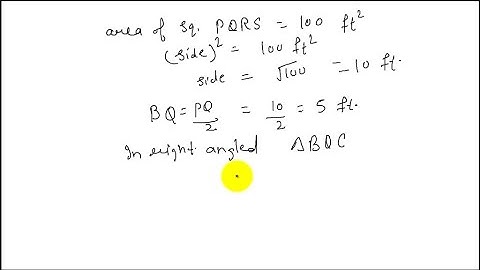 area of sq. PQRS = 100 ft²
(side)² = 100 ft²
side = √100 = 10 ft.
BQ = PQ/2 = 10/2 = 5 ft.
In right angled ΔBQC